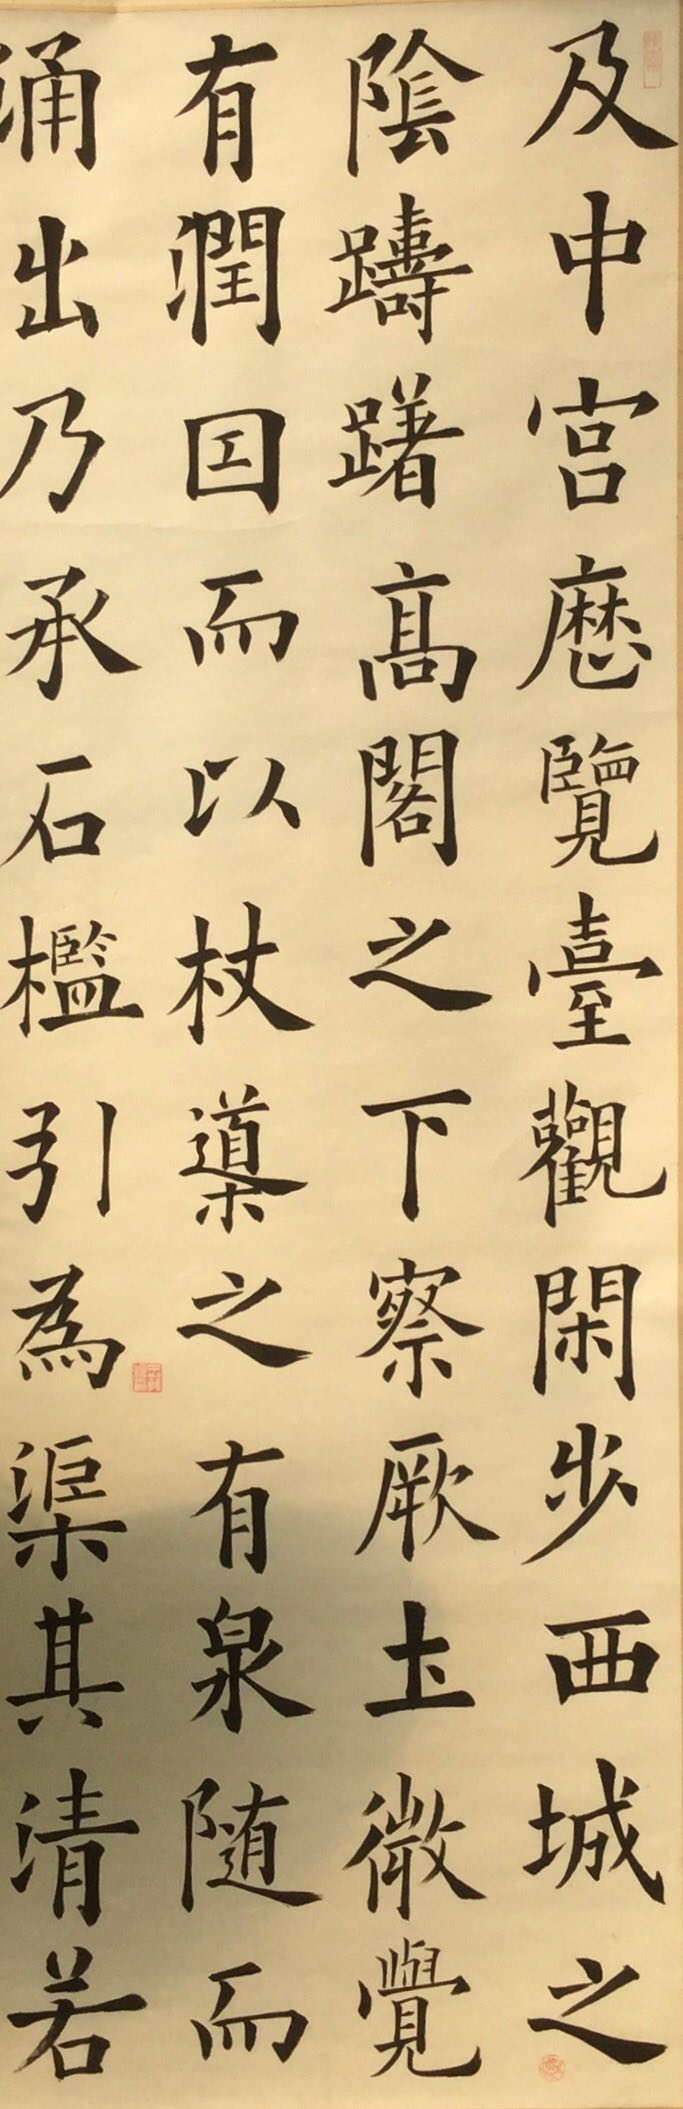 及中宮歴覽臺觀閑步西城之
陰躊躇高閣之下察厥土微覺
有潤因而以杖導之有泉隨而
涌出乃承石檻引為渠其清若